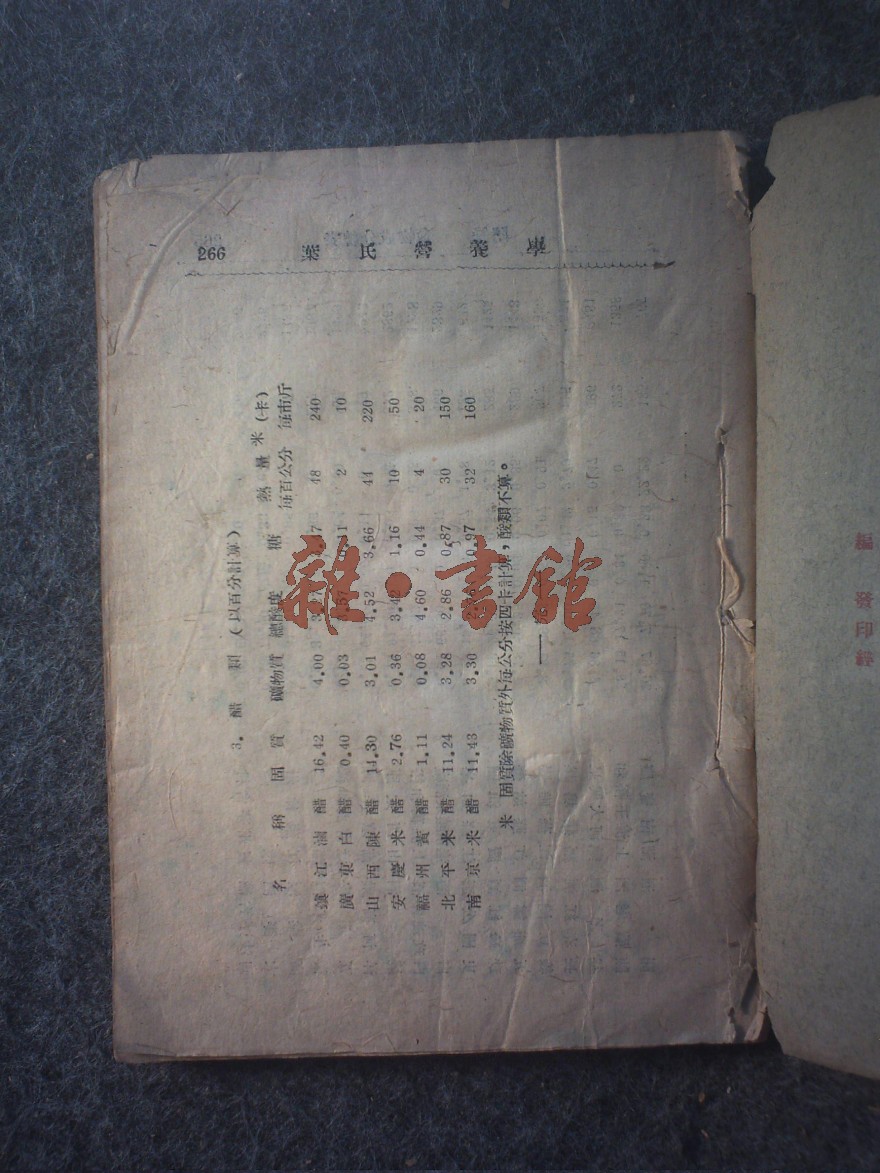 266 葉氏營養學
3. 醋類 (以百分計算)
熱量 米 (卡)
名稱 固質 礦物質 總酸度 糖 每百公分 每市斤
鎮江滷醋 16.42 4.00 48 240
廣東白醋 0.40 0.03 2 10
山西陳醋 14.30 3.01 4.52 3.66 44 220
安慶米醋 2.76 0.36 3.42 1.16 10 50
福州賓醋 1.11 0.08 4.60 0.44 4 20
北平米醋 11.24 3.28 2.86 0.87 30 150
南京米醋 11.43 3.30 0.97 32 160
米 固質除礦物質外每公分按四卡計算，酸類不算。
雜·書館